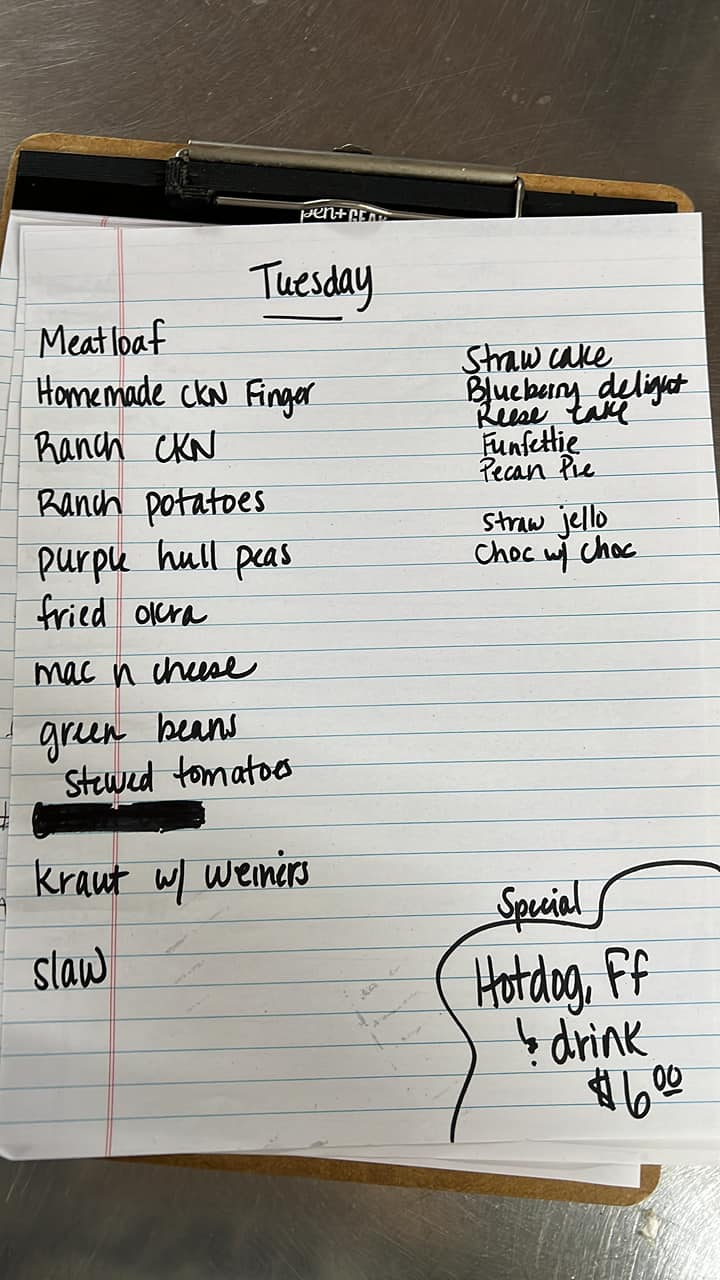 pen+GEAR
Tuesday
Meatloaf
Homemade CKN Finger
Ranch CKN
Ranch potatoes
purple hull peas
fried okra
mac n cheese
green beans
Stewed tomatoes
Kraut w/ weiners
slaw
Straw cake
Blueberry delight
Reese cake
Funfettie
Pecan Pie
Straw jello
Choc w/ choc
Special
Hotdog, Ff
& drink
$6.00